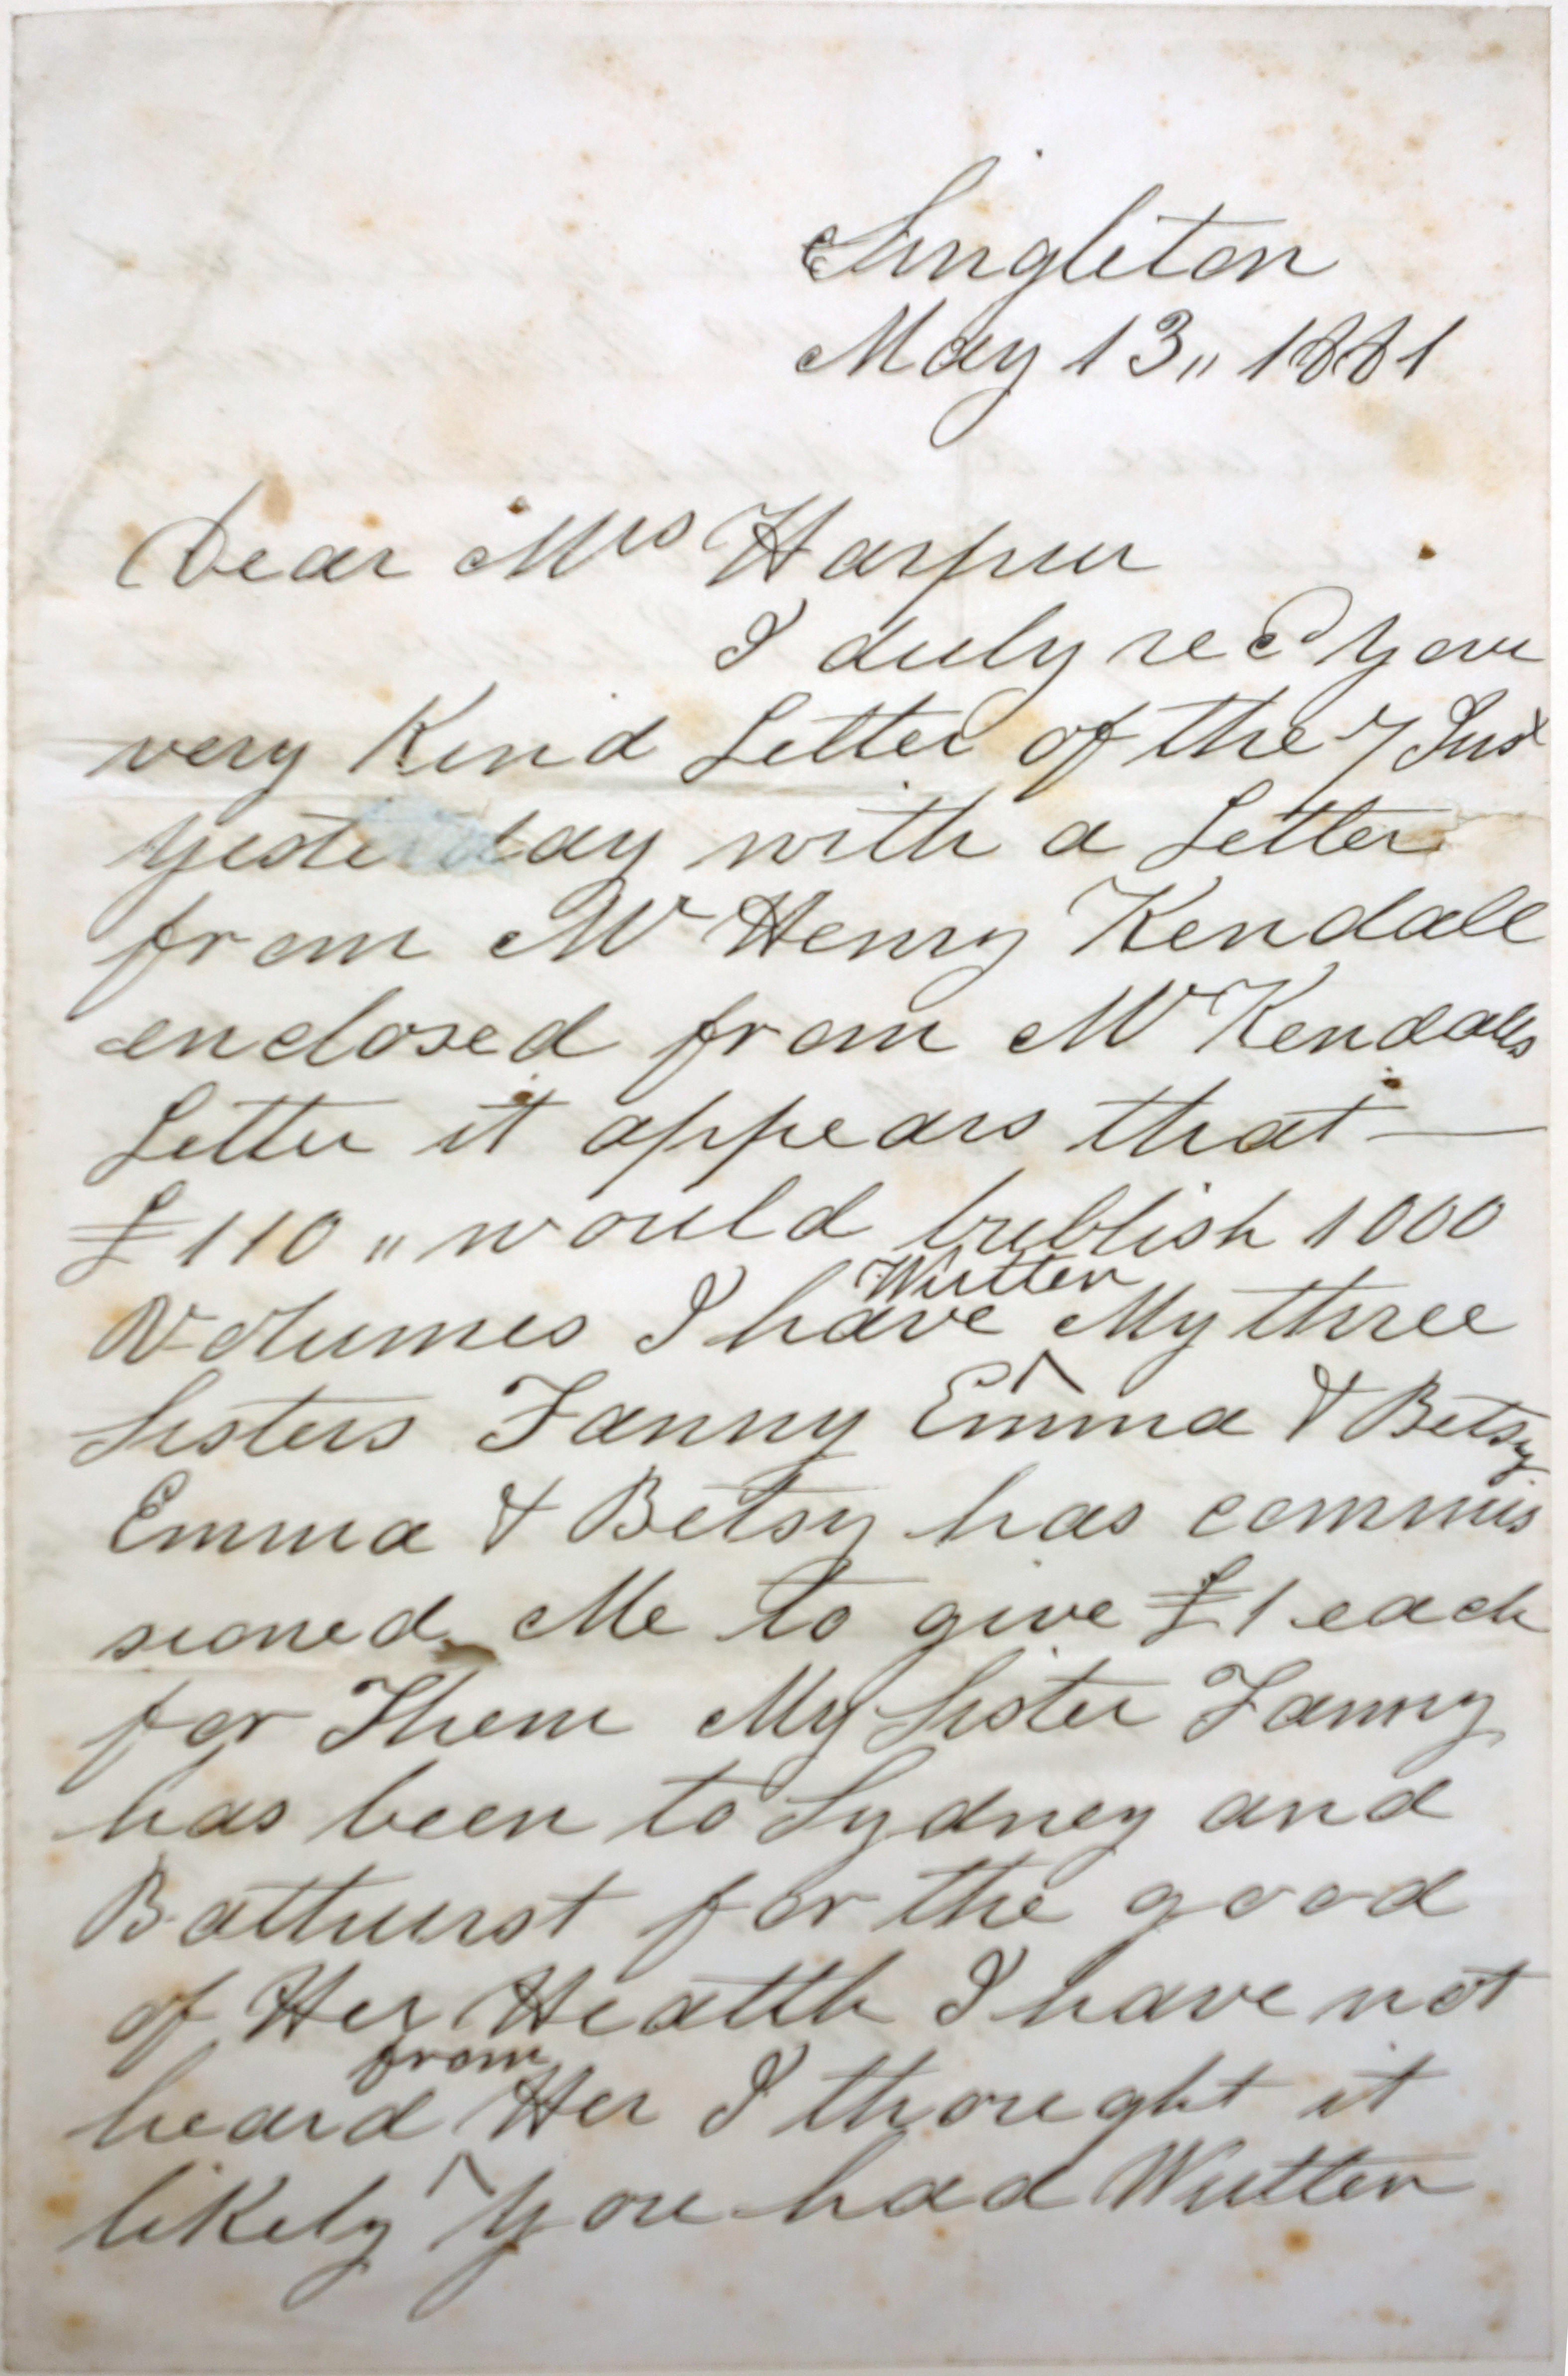 Singleton
May 13,, 1881
Dear Mrs Harpur
I duly recd your
very Kind Letter of the 7 Inst
yesterday with a Letter
from Mr Henry Kendall
enclosed from Mr Kendalls
Letter it appears that —
£110 ,, would publish 1000
Volumes I have Written My three
Sisters Fanny Emma & Betsy
Emma & Betsy has commis
sioned Me to give £1 each
for Them My Sister Fanny
has been to Sydney and
Bathurst for the good
of Her Health I have not
heard from Her I thought it
likely you had Written